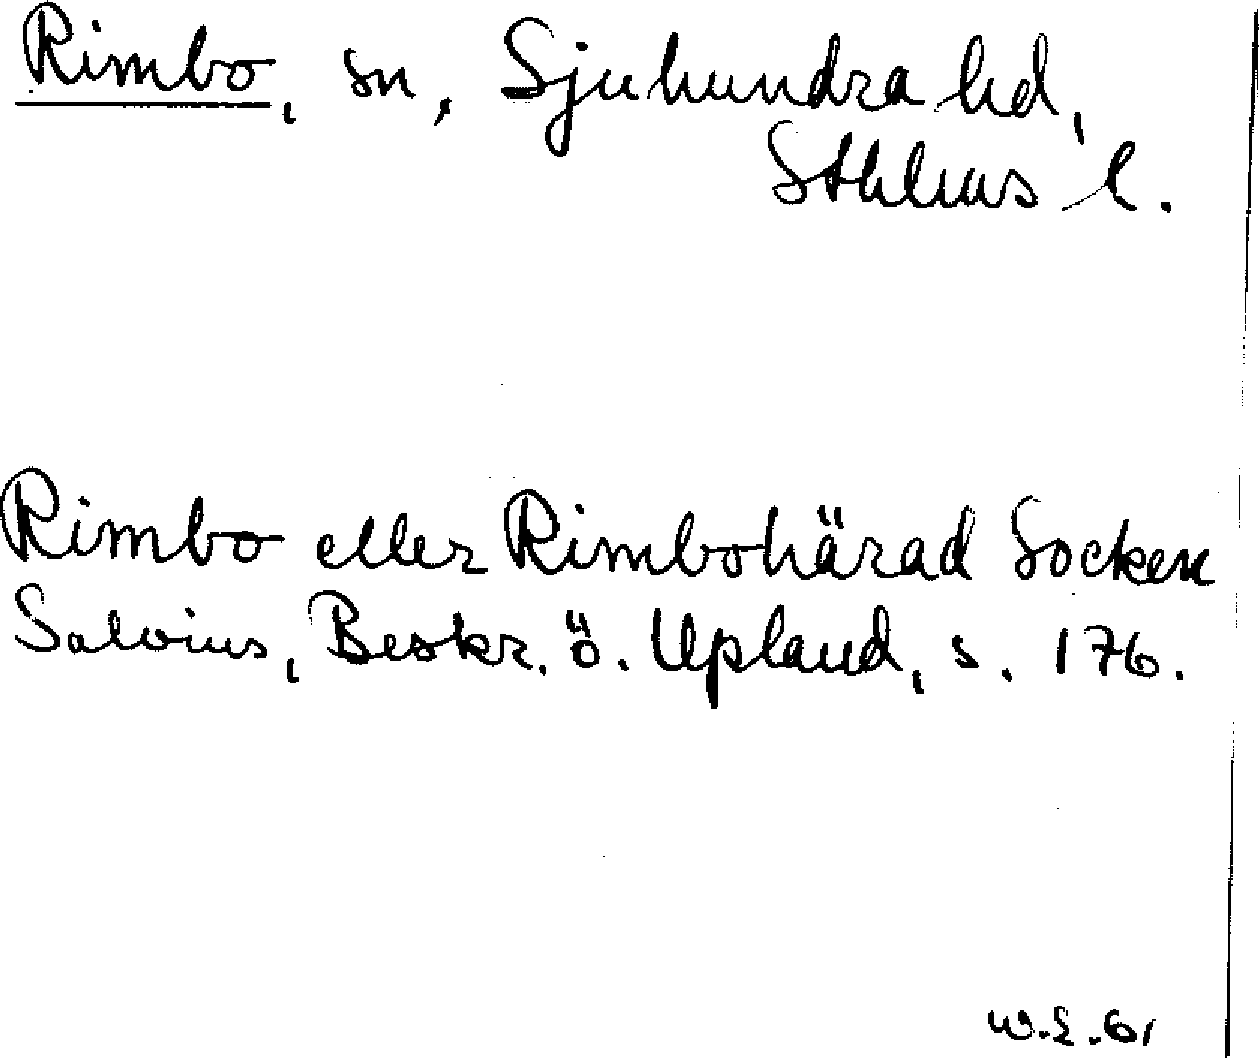 Rimbo, sn, Sjuhundra hd,
Sthlms l.
Rimbo eller Rimbohärad Socken
Salvius, Beskr. ö. Upland, s. 176.
W.E.61